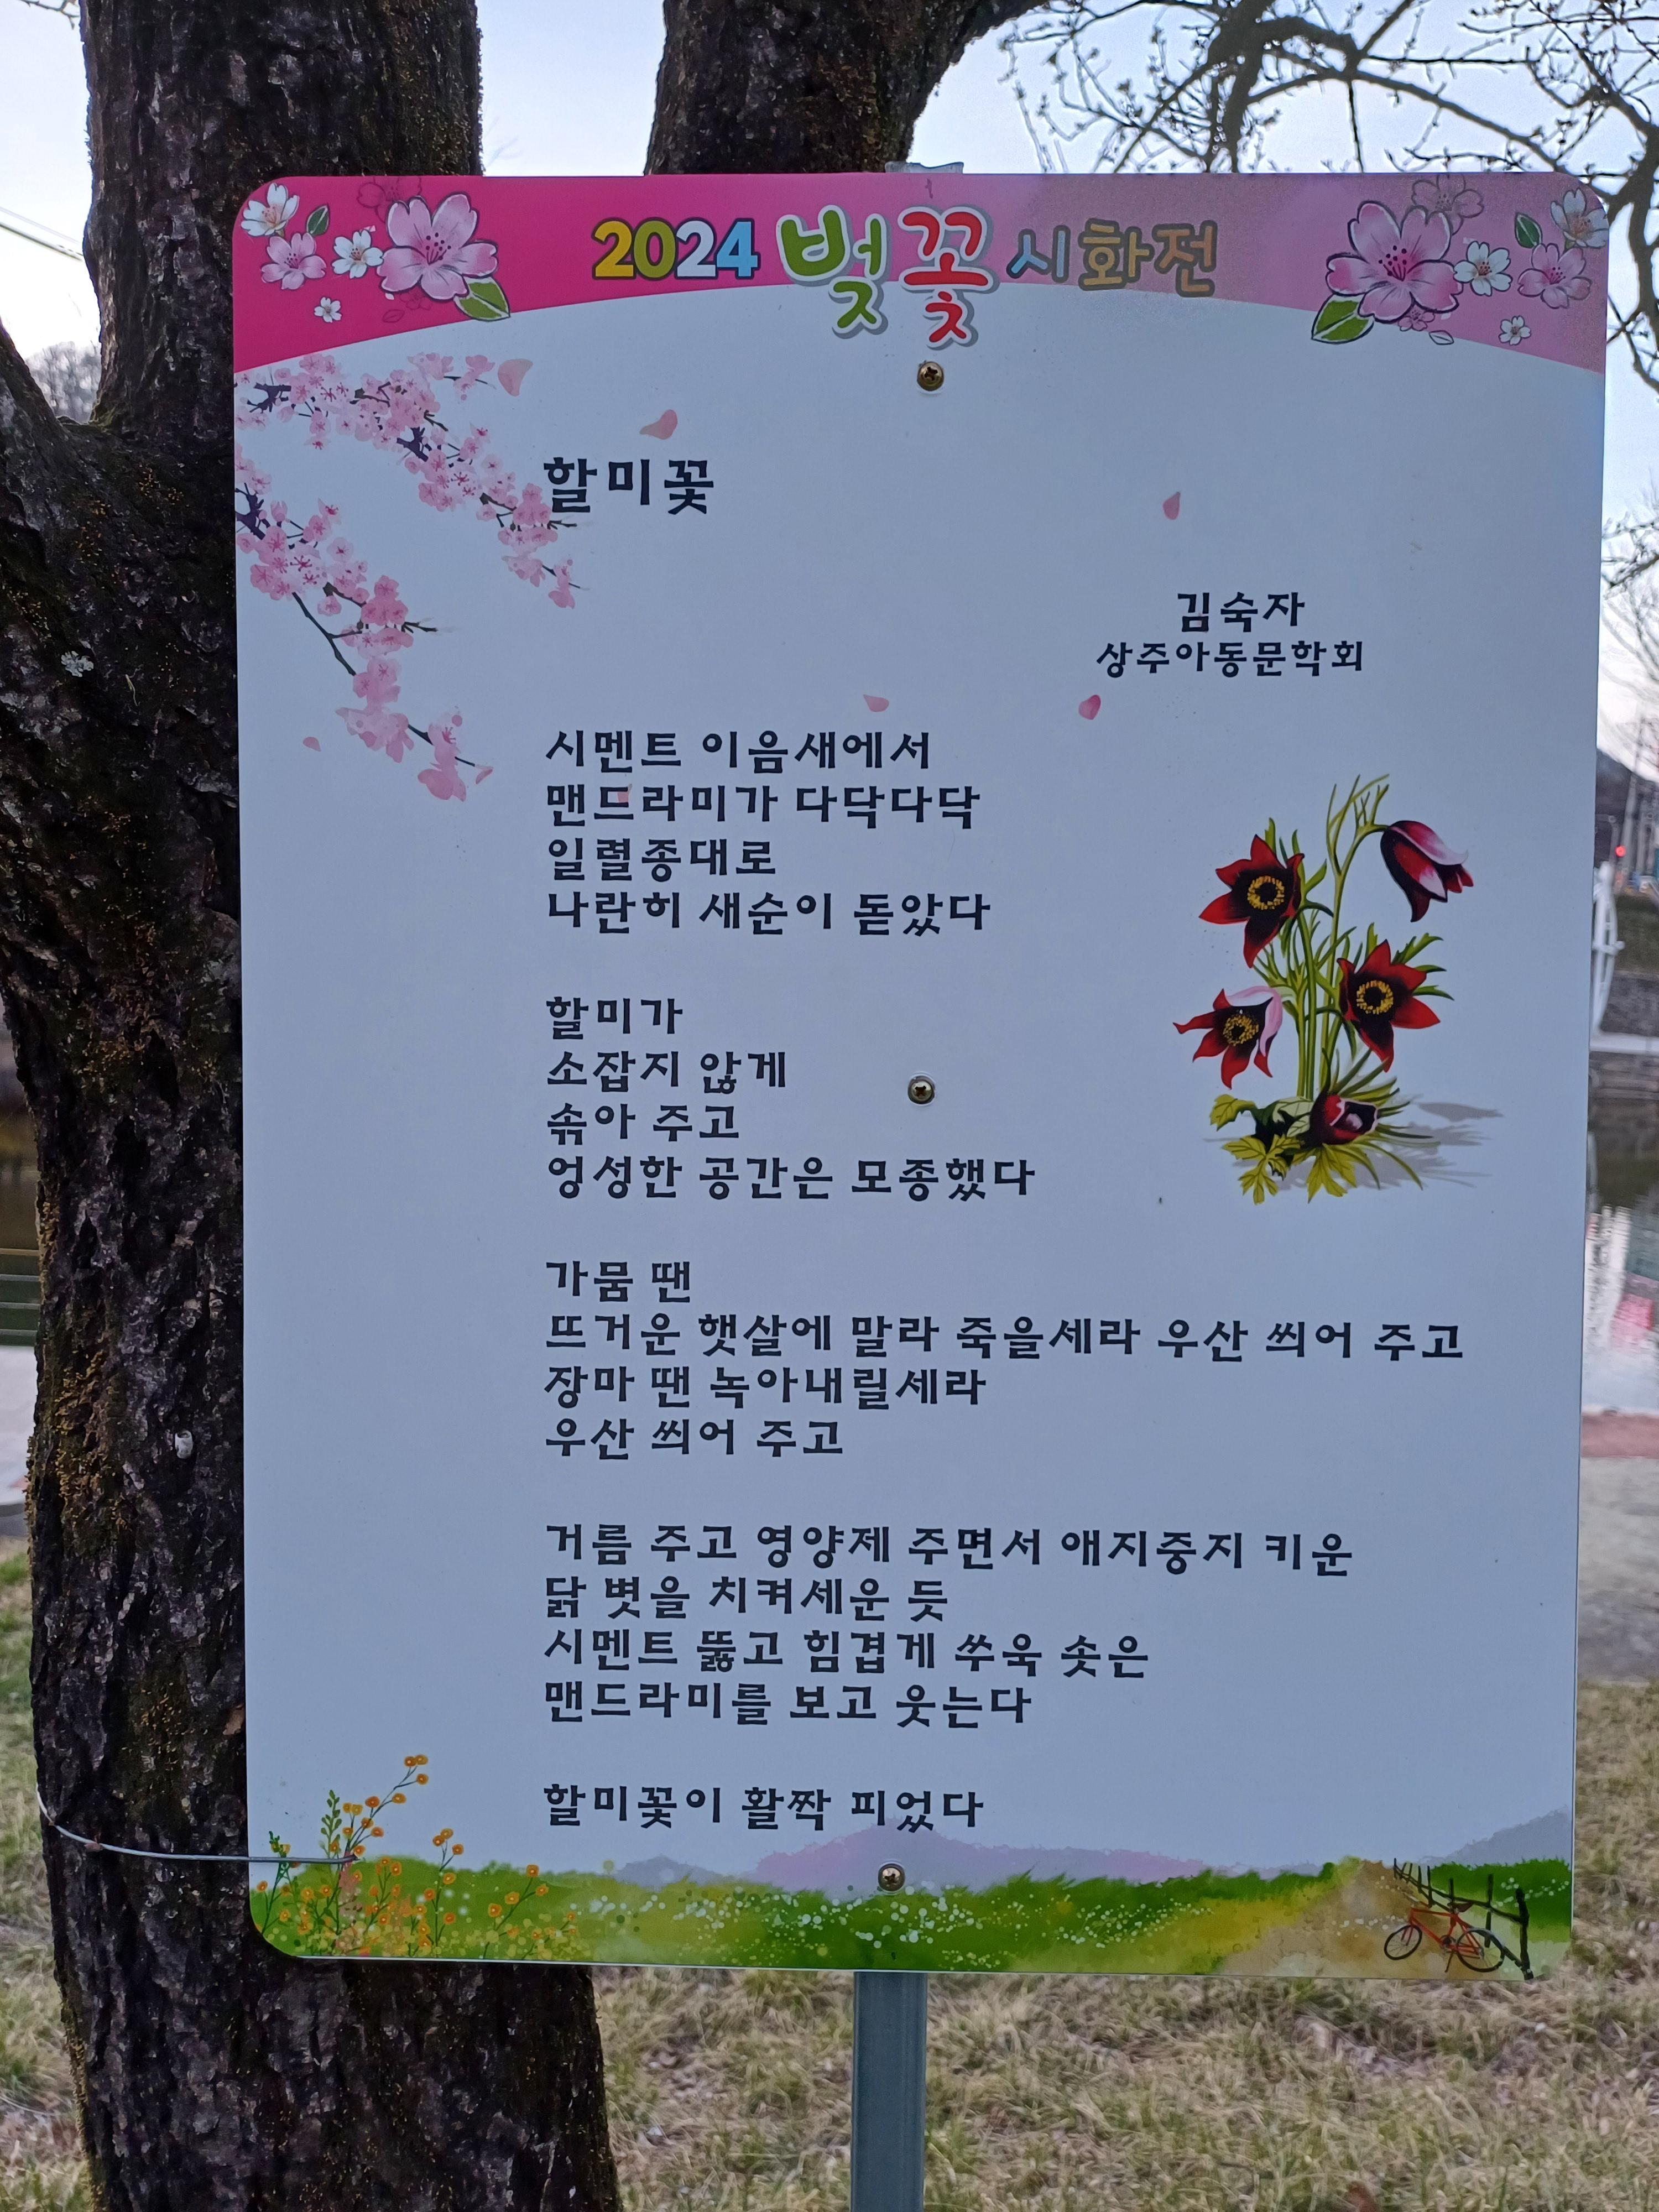 2024 벚꽃 시화전
할미꽃
김숙자
상주아동문학회
시멘트 이음새에서
맨드라미가 다닥다닥
일렬종대로
나란히 새순이 돋았다
할미가
소잡지 않게
솎아 주고
엉성한 공간은 모종했다
가뭄 땐
뜨거운 햇살에 말라 죽을세라 우산 씌어 주고
장마 땐 녹아내릴세라
우산 씌어 주고
거름 주고 영양제 주면서 애지중지 키운
닭 볏을 치켜세운 듯
시멘트 뚫고 힘겹게 쑤욱 솟은
맨드라미를 보고 웃는다
할미꽃이 활짝 피었다